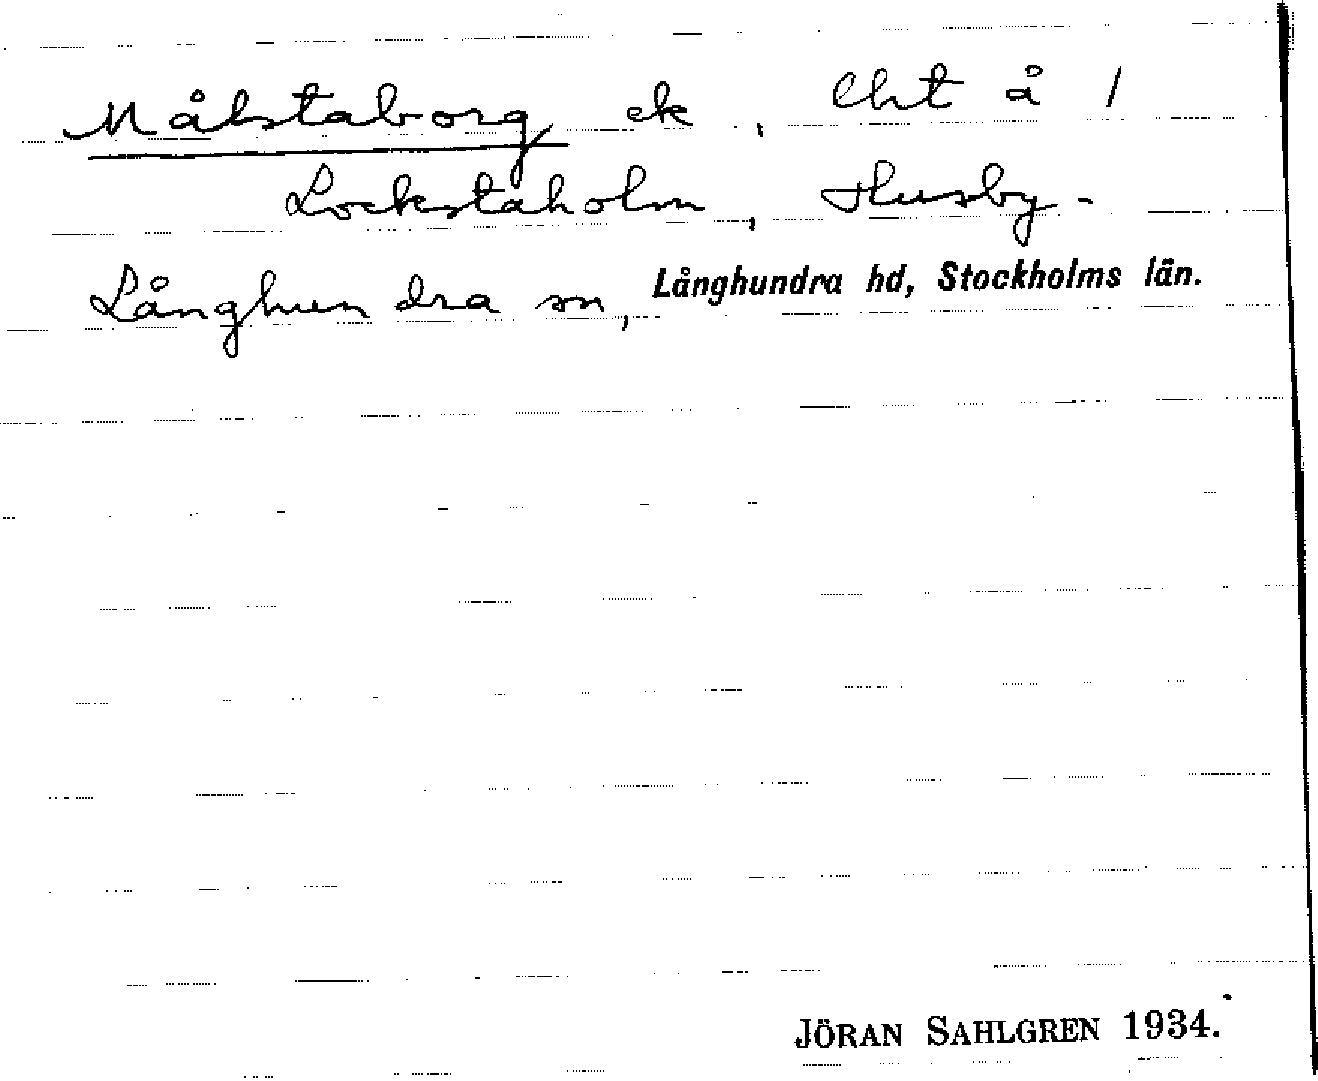 Målstaborg ek, lht å 1
Lockstaholm, Husby-
Långhundra sn, Långhundra hd, Stockholms län.
JÖRAN SAHLGREN 1934.